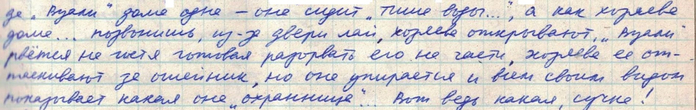 де „Вуали" дома одна – она сидит „тише воды...", а как хозяева
дома... позвонишь, из-за двери лай, хозяева открывают, „Вуали"
рвётся на гостя готовая разорвать его на части, хозяева её от-
таскивают за ошейник, но она упирается и всем своим видом
показывает какая она „охранница"... Вот ведь какая, сучка!